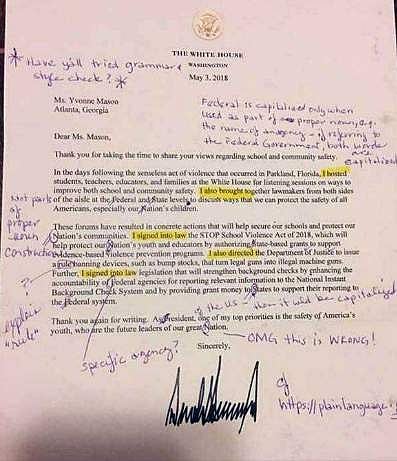 THE WHITE HOUSE
WASHINGTON
May 3, 2018
* Have y'all tried grammar &
style check? *
Ms. Yvonne Mason
Atlanta, Georgia
Federal is capitalized only when
used as part of proper noun, e.g.
the name of an agency - if referring to
the Federal Government, both words
capitalized
Dear Ms. Mason,
Thank you for taking the time to share your views regarding school and community safety.
In the days following the senseless act of violence that occurred in Parkland, Florida, I hosted
students, teachers, educators, and families at the White House for listening sessions on ways to
improve both school and community safety. I also brought together lawmakers from both sides
of the aisle at the Federal and State levels to discuss ways that we can protect the safety of all
Americans, especially our Nation's children.
Not part
of
proper
noun
construction
These forums have resulted in concrete actions that will help secure our schools and protect our
Nation's communities. I signed into law the STOP School Violence Act of 2018, which will
help protect our Nation's youth and educators by authorizing State-based grants to support
evidence-based violence prevention programs. I also directed the Department of Justice to issue
a rule banning devices, such as bump stocks, that turn legal guns into illegal machine guns.
Further, I signed into law legislation that will strengthen background checks by enhancing the
accountability of Federal agencies for reporting relevant information to the National Instant
Background Check System and by providing grant money to States to support their reporting to
the Federal system.
?
explain
"rule"
of the US - then it wld be capitalized
Thank you again for writing. As President, one of my top priorities is the safety of America's
youth, who are the future leaders of our great Nation.
specific agency?
Sincerely,
OMG this is WRONG!
cf
https://plainlanguage.